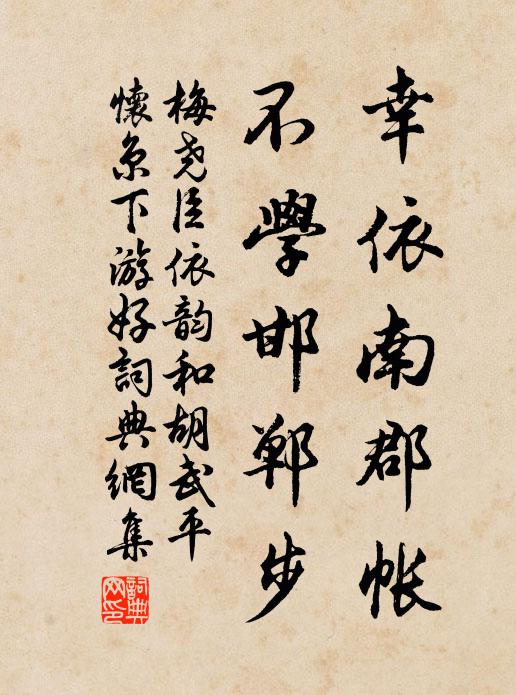 幸依南郡帐
不學邯鄲步
梅尧臣依韵和胡武平
懷京下游好詞典網集
詞典网印